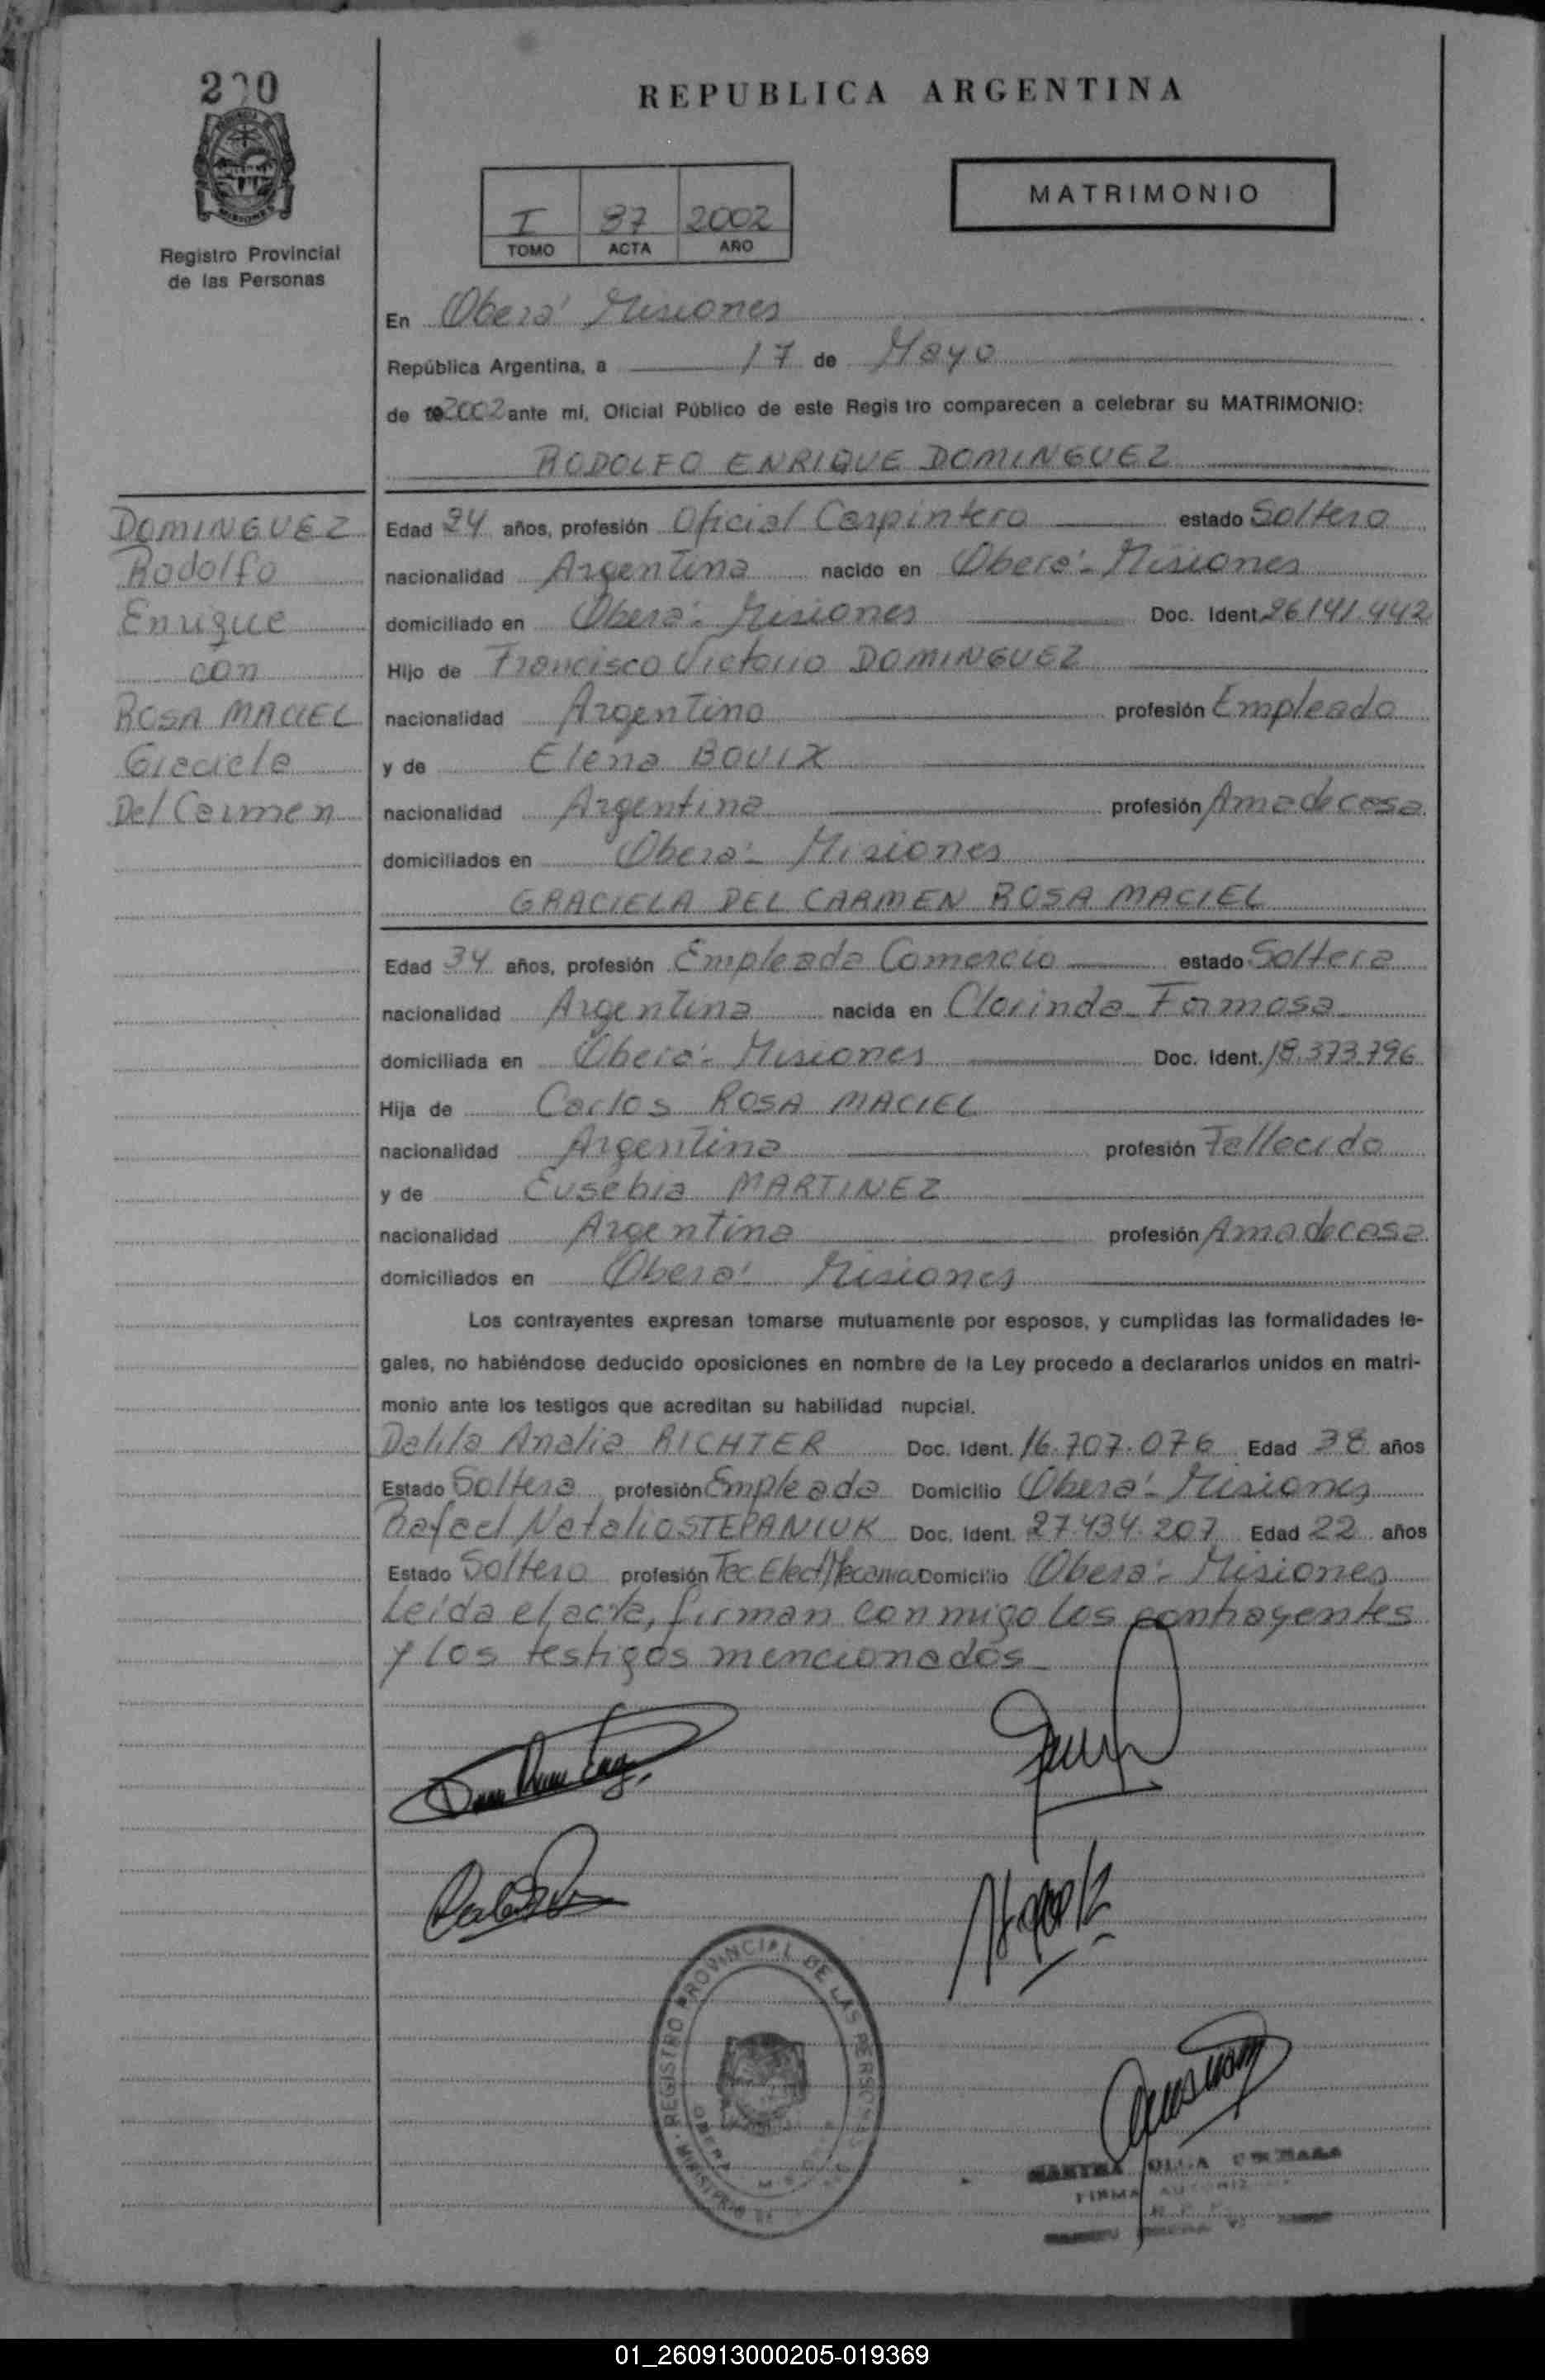 REPUBLICA ARGENTINA
MATRIMONIO
I 97 2002
TOMO ACTA AÑO
Registro Provincial
de las Personas
En Oberá Misiones
República Argentina, a 17 de Mayo
de 2002 ante mí, Oficial Público de este Regis tro comparecen a celebrar su MATRIMONIO:
RODOLFO ENRIQUE DOMINGUEZ
DOMINGUEZ
Rodolfo
Enrique
con
ROSA MACIEL
Graciela
Del Carmen
Edad 24 años, profesión Oficial Carpintero estado Soltero
nacionalidad Argentina nacido en Oberá - Misiones
domiciliado en Oberá - Misiones Doc. Ident. 26.141.442
Hijo de Francisco Victorio DOMINGUEZ
nacionalidad Argentino profesión Empleado
y de Elena BOVIX
nacionalidad Argentina profesión Ama de casa
domiciliados en Oberá - Misiones
GRACIELA DEL CARMEN ROSA MACIEL
Edad 34 años, profesión Empleada Comercio estado Soltera
nacionalidad Argentina nacida en Clorinda - Formosa
domiciliada en Oberá - Misiones Doc. Ident. 18.373.796
Hija de Carlos ROSA MACIEL
nacionalidad Argentina profesión Fallecido
y de Eusebia MARTINEZ
nacionalidad Argentina profesión Ama de casa
domiciliados en Oberá - Misiones
Los contrayentes expresan tomarse mutuamente por esposos, y cumplidas las formalidades le-
gales, no habiéndose deducido oposiciones en nombre de la Ley procedo a declararlos unidos en matri-
monio ante los testigos que acreditan su habilidad nupcial.
Dalila Analia RICHTER Doc. Ident. 16.707.076 Edad 38 años
Estado Soltera profesión Empleada Domicilio Oberá - Misiones
Rafael Natalio STEPANIUK Doc. Ident. 27.434.207 Edad 22 años
Estado Soltero profesión Tec. Elect Mecanica Domicilio Oberá - Misiones
Leída el acta, firman conmigo los contrayentes
y los testigos mencionados
REGISTRO PROVINCIAL DE LAS PERSONAS
MARTHA OLGA
FIRMA
01_260913000205-019369